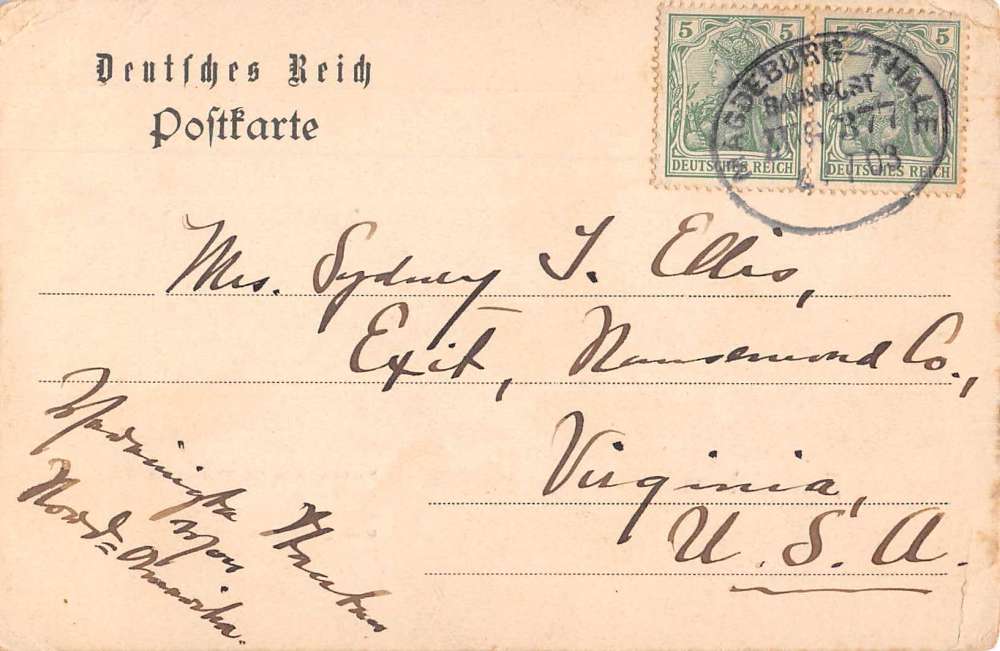 Deutsches Reich
Postkarte
5
5
DEUTSCHES REICH
DEUTSCHES REICH
MAGDEBURG-THALE
BAHNPOST
ZUG 377
4. 7 03
Mrs. Sydney T. Ellis,
Exit, Nansemond Co.,
Virginia,
U. S. A.
Vereinigte Staaten
von
Nord=Amerika.